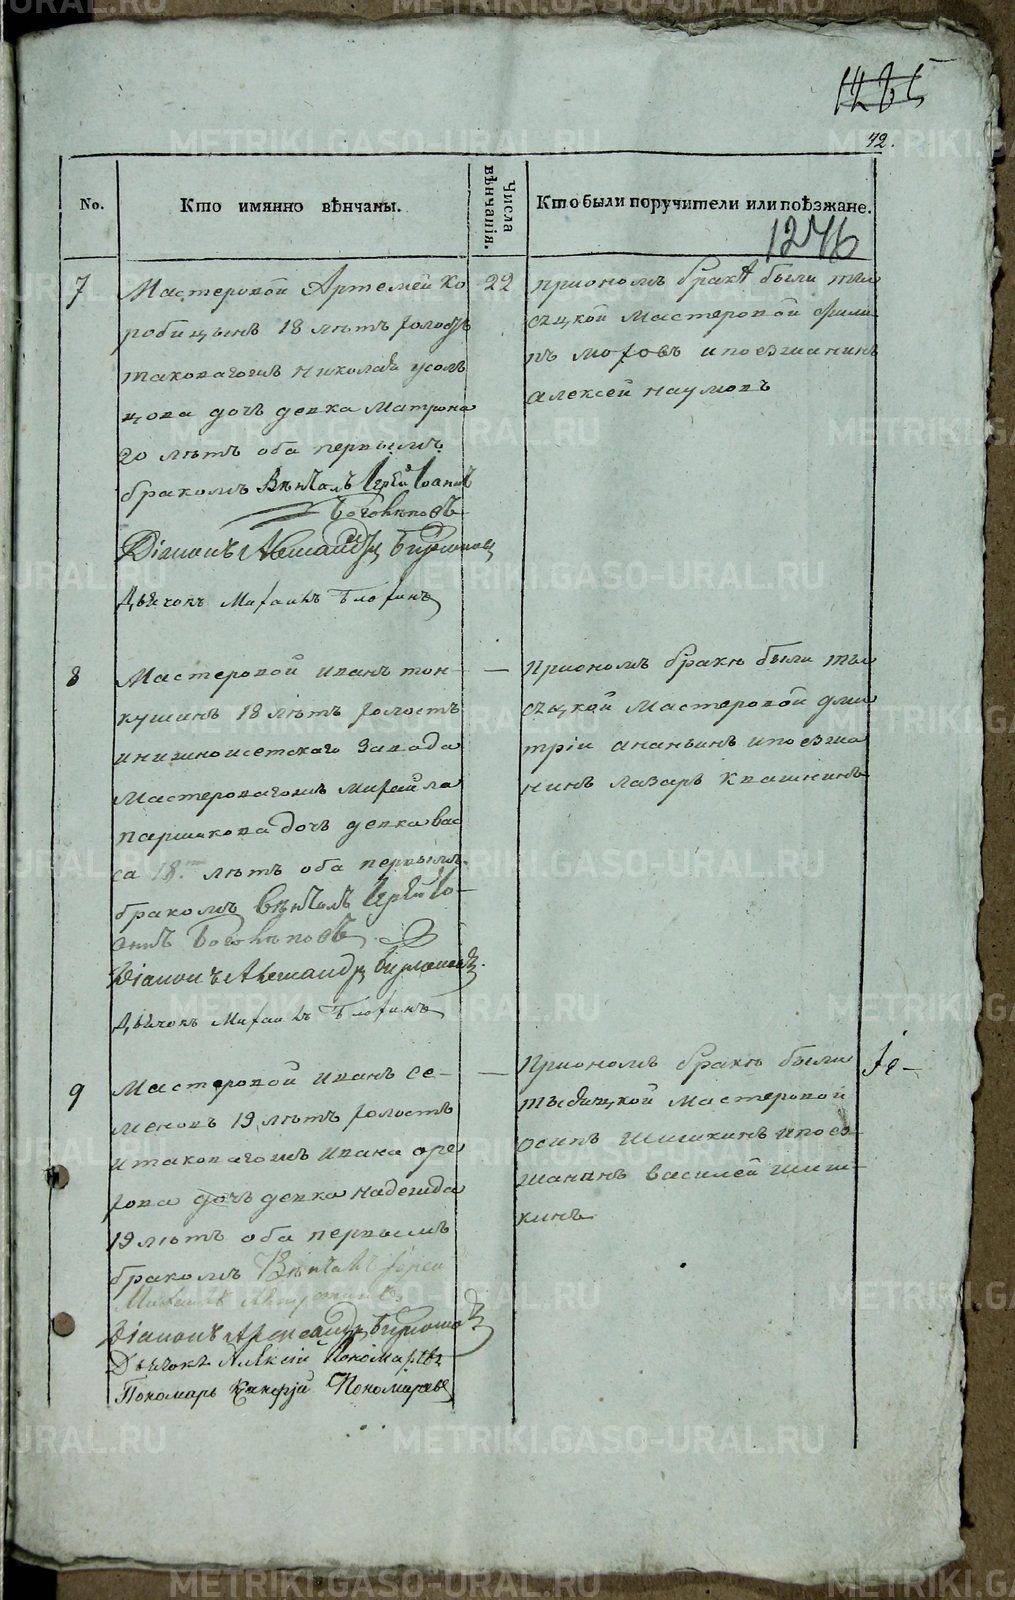 1285
42.
No.
Кто имянно вѣнчаны.
Числа вѣнчанія.
Кто были поручители или поѣзжане.
1276
7
Мастеровой Артемей Ко
робицынъ 18 лѣтъ холостъ
таковагожъ Николая усоль
цова дочь девка Матрона
20 лѣтъ оба первымъ
бракомъ Вѣнчалъ Іерей Іоаннъ
Боголѣповъ
Діаконъ Александръ
Дьячокъ Михаилъ
22
приономъ бракѣ были ты
сяцкой Мастеровой фили
пъ мохов ипоезжанинъ
алексей наумовъ
8
Мастеровой иванъ тон
кушинъ 18 лѣтъ холостъ
инижноисетскаго завода
Мастероваго Михайла
паршакова дочь девка вас
са 18 лѣтъ оба первымъ
бракомъ Вѣнчалъ Іерей Іо
аннъ Боголѣповъ
Діаконъ Александръ
Дьячокъ Михаилъ
—
Приономъ бракѣ были ты
сяцкой Мастеровой дми
трiи ананьинъ ипоезжа
нинъ лазарь квашнинъ
9
Мастеровой иванъ се-
меновъ 19 лѣтъ холостъ
итаковагожъ ивана оре
хова дочь девка надежда
19 лѣтъ оба первымъ
бракомъ Вѣнчалъ Іерей
Діаконъ Александръ
Дьячокъ Алексій Пономаревъ
Пономарь Пономаревъ
—
Приономъ бракѣ были
тысяцкой Мастеровой
осипъ шишкинъ ипоез
жанинъ василей шиш-
кинъ
METRIKI.GASO-URAL.RU